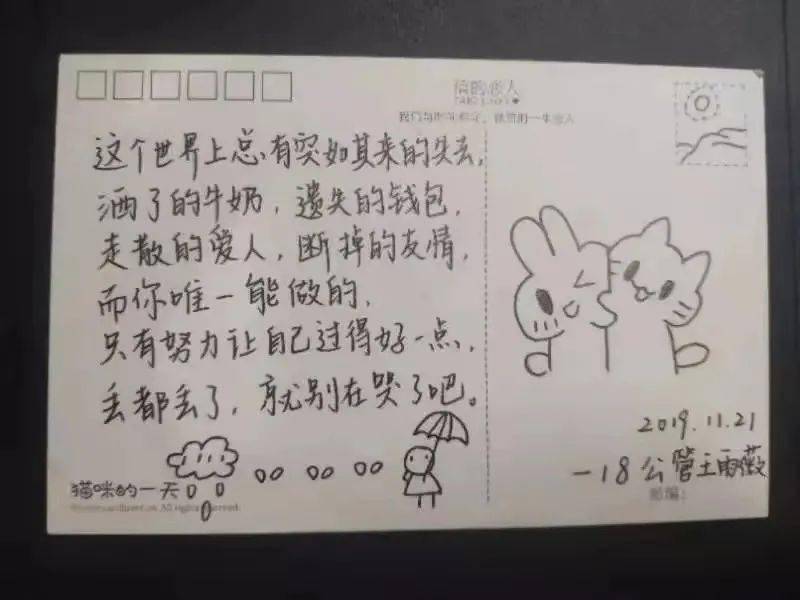 信的恋人
这个世界上总有突如其来的失去,
洒了的牛奶,遗失的钱包,
走散的爱人,断掉的友情,
而你唯一能做的,
只有努力让自己过得好一点,
丢都丢了,就别在哭了吧。
2019.11.21
—18公管王雨薇
猫咪的一天
All rights reserved.
邮编: